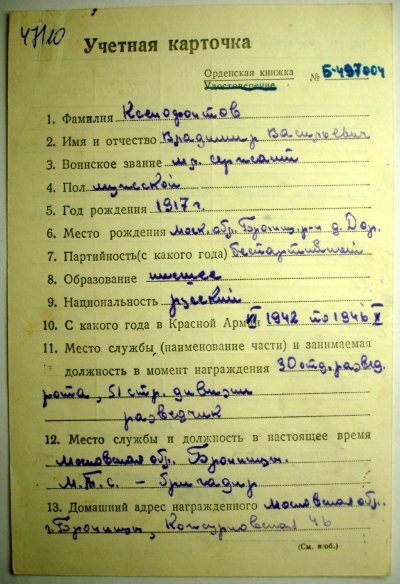 47110
Учетная карточка
Орденская книжка
Удостоверение № Б-497004
1. Фамилия Ксенофонтов
2. Имя и отчество Владимир Васильевич
3. Воинское звание мл. сержант
4. Пол мужской
5. Год рождения 1917 г.
6. Место рождения Моск. обл. Бронниц. р-н д. Дор.
7. Партийность(с какого года) беспартийный
8. Образование низшее
9. Национальность русский
10. С какого года в Красной Армии VI 1942 по 1946 X
11. Место службы (наименование части) и занимаемая
должность в момент награждения 30 отд. развед.
рота, 51 стр. дивизии
разведчик
12. Место службы и должность в настоящее время
Московская обл. Бронницы.
М.Т.С. – бригадир
13. Домашний адрес награжденного Московская обл.
г. Бронницы, Кожурновская 46
(См. н-об.)